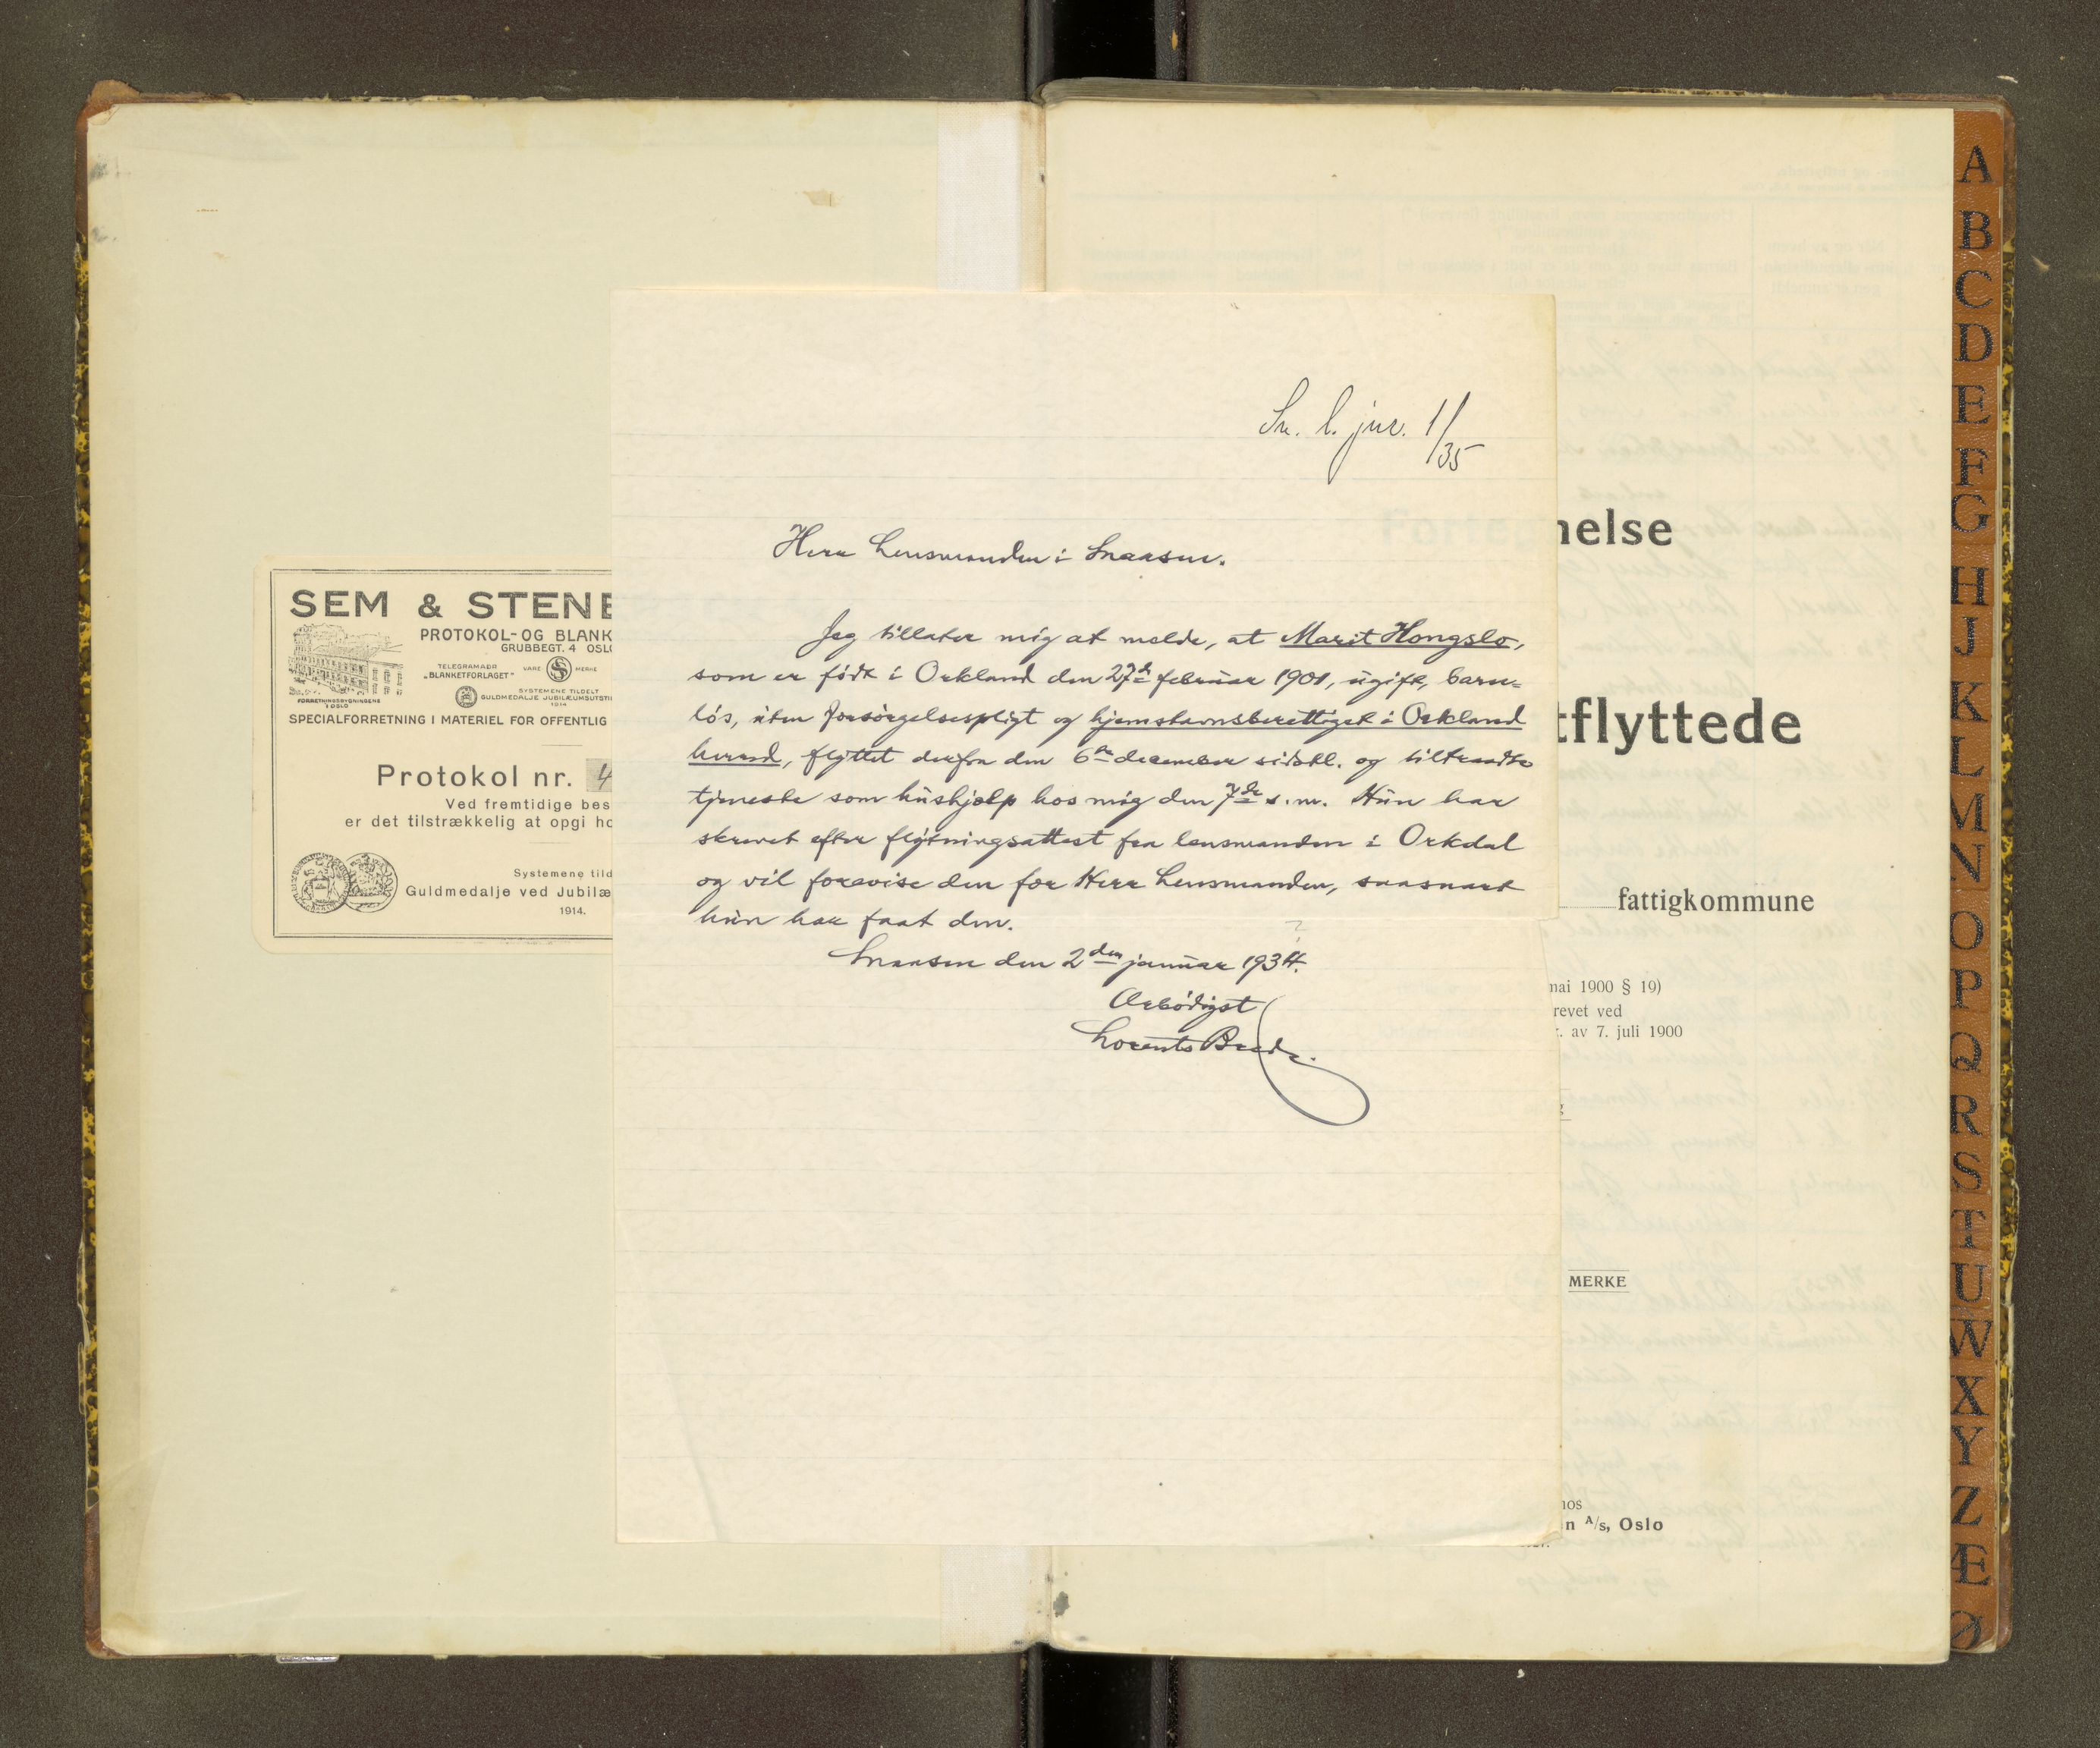 SEM & STENE
PROTOKOL- OG BLANK
GRUBBEGT. 4 OSLO
TELEGRAMADR
„BLANKETFORLAGET"
VARE MERKE
SYSTEMENE TILDELT
GULDMEDALJE JUBILÆUMSUTSTI
1914
FORRETNINGSBYGNINGENE
I OSLO
SPECIALFORRETNING I MATERIEL FOR OFFENTLIG
Protokol nr. 4
Ved fremtidige bes
er det tilstrækkelig at opgi ho
Systemene tild
Guldmedalje ved Jubilæ
1914.
Sn. l. jnr. 1/35
Herr Lensmanden i Snaasen.
Jeg tillater mig at melde, at Marit Hongslo,
som er født i Orkland den 27de februar 1901, ugift, barn=
løs, uten forsørgelsespligt og hjemstavnsberettiget i Orkland
herred, flyttet derfra den 6te december sidstl. og tiltraadte
tjeneste som hushjælp hos mig den 7de s.m. Hun har
skrevet efter flytningsattest fra lensmanden i Orkdal
og vil forevise den for Herr Lensmanden, saasnart
hun har faat den.
Snaasen den 2den januar 1934.
Ærbødigst
Lorents Brede.
nelse
tflyttede
fattigkommune
mai 1900 § 19)
revet ved
. av 7. juli 1900
MERKE
hos
n A/s, Oslo
A
B
C
D
E
F
G
H
J
K
L
M
N
O
P
Q
R
S
T
U
W
X
Y
Z
Æ
Ø